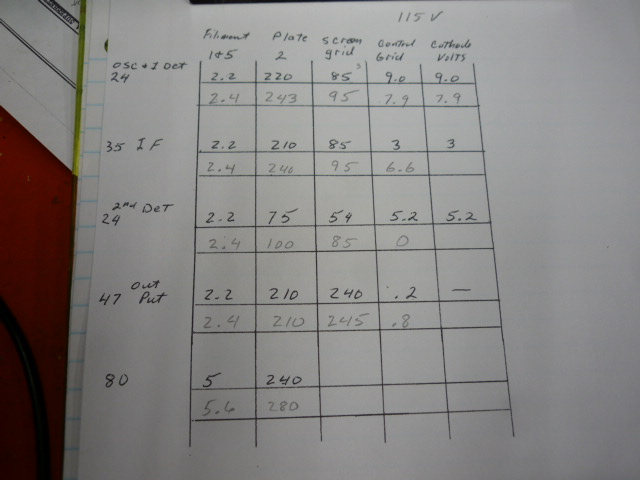 115 V
Filament Plate Screen Control Cathode
1+5 2 grid Grid Volts
3
OSC + I Det
24 2.2 220 85 9.0 9.0
2.4 243 95 7.9 7.9
35 IF 2.2 210 85 3 3
2.4 246 95 6.6
2nd Det
24 2.2 75 54 5.2 5.2
2.4 100 85 0
Out
47 Put 2.2 210 240 .2 —
2.4 210 245 .8
80 5 240
5.6 280